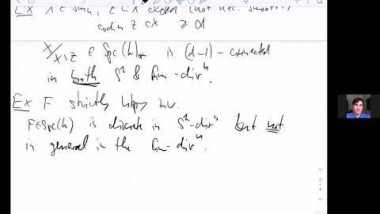 Ex X ∈ Sm_k, Z ⊂ X closed (not nec. smooth)
codim Z ⊂ X ≥ d
X/X\Z ∈ Spc(k)_* is (d-1)-connected
in both S² & Gm-div^n.
Ex F strictly htpy inv.
F∈Spc(k) is discrete in S²-div^n but not
in general in the Gm-div^n.